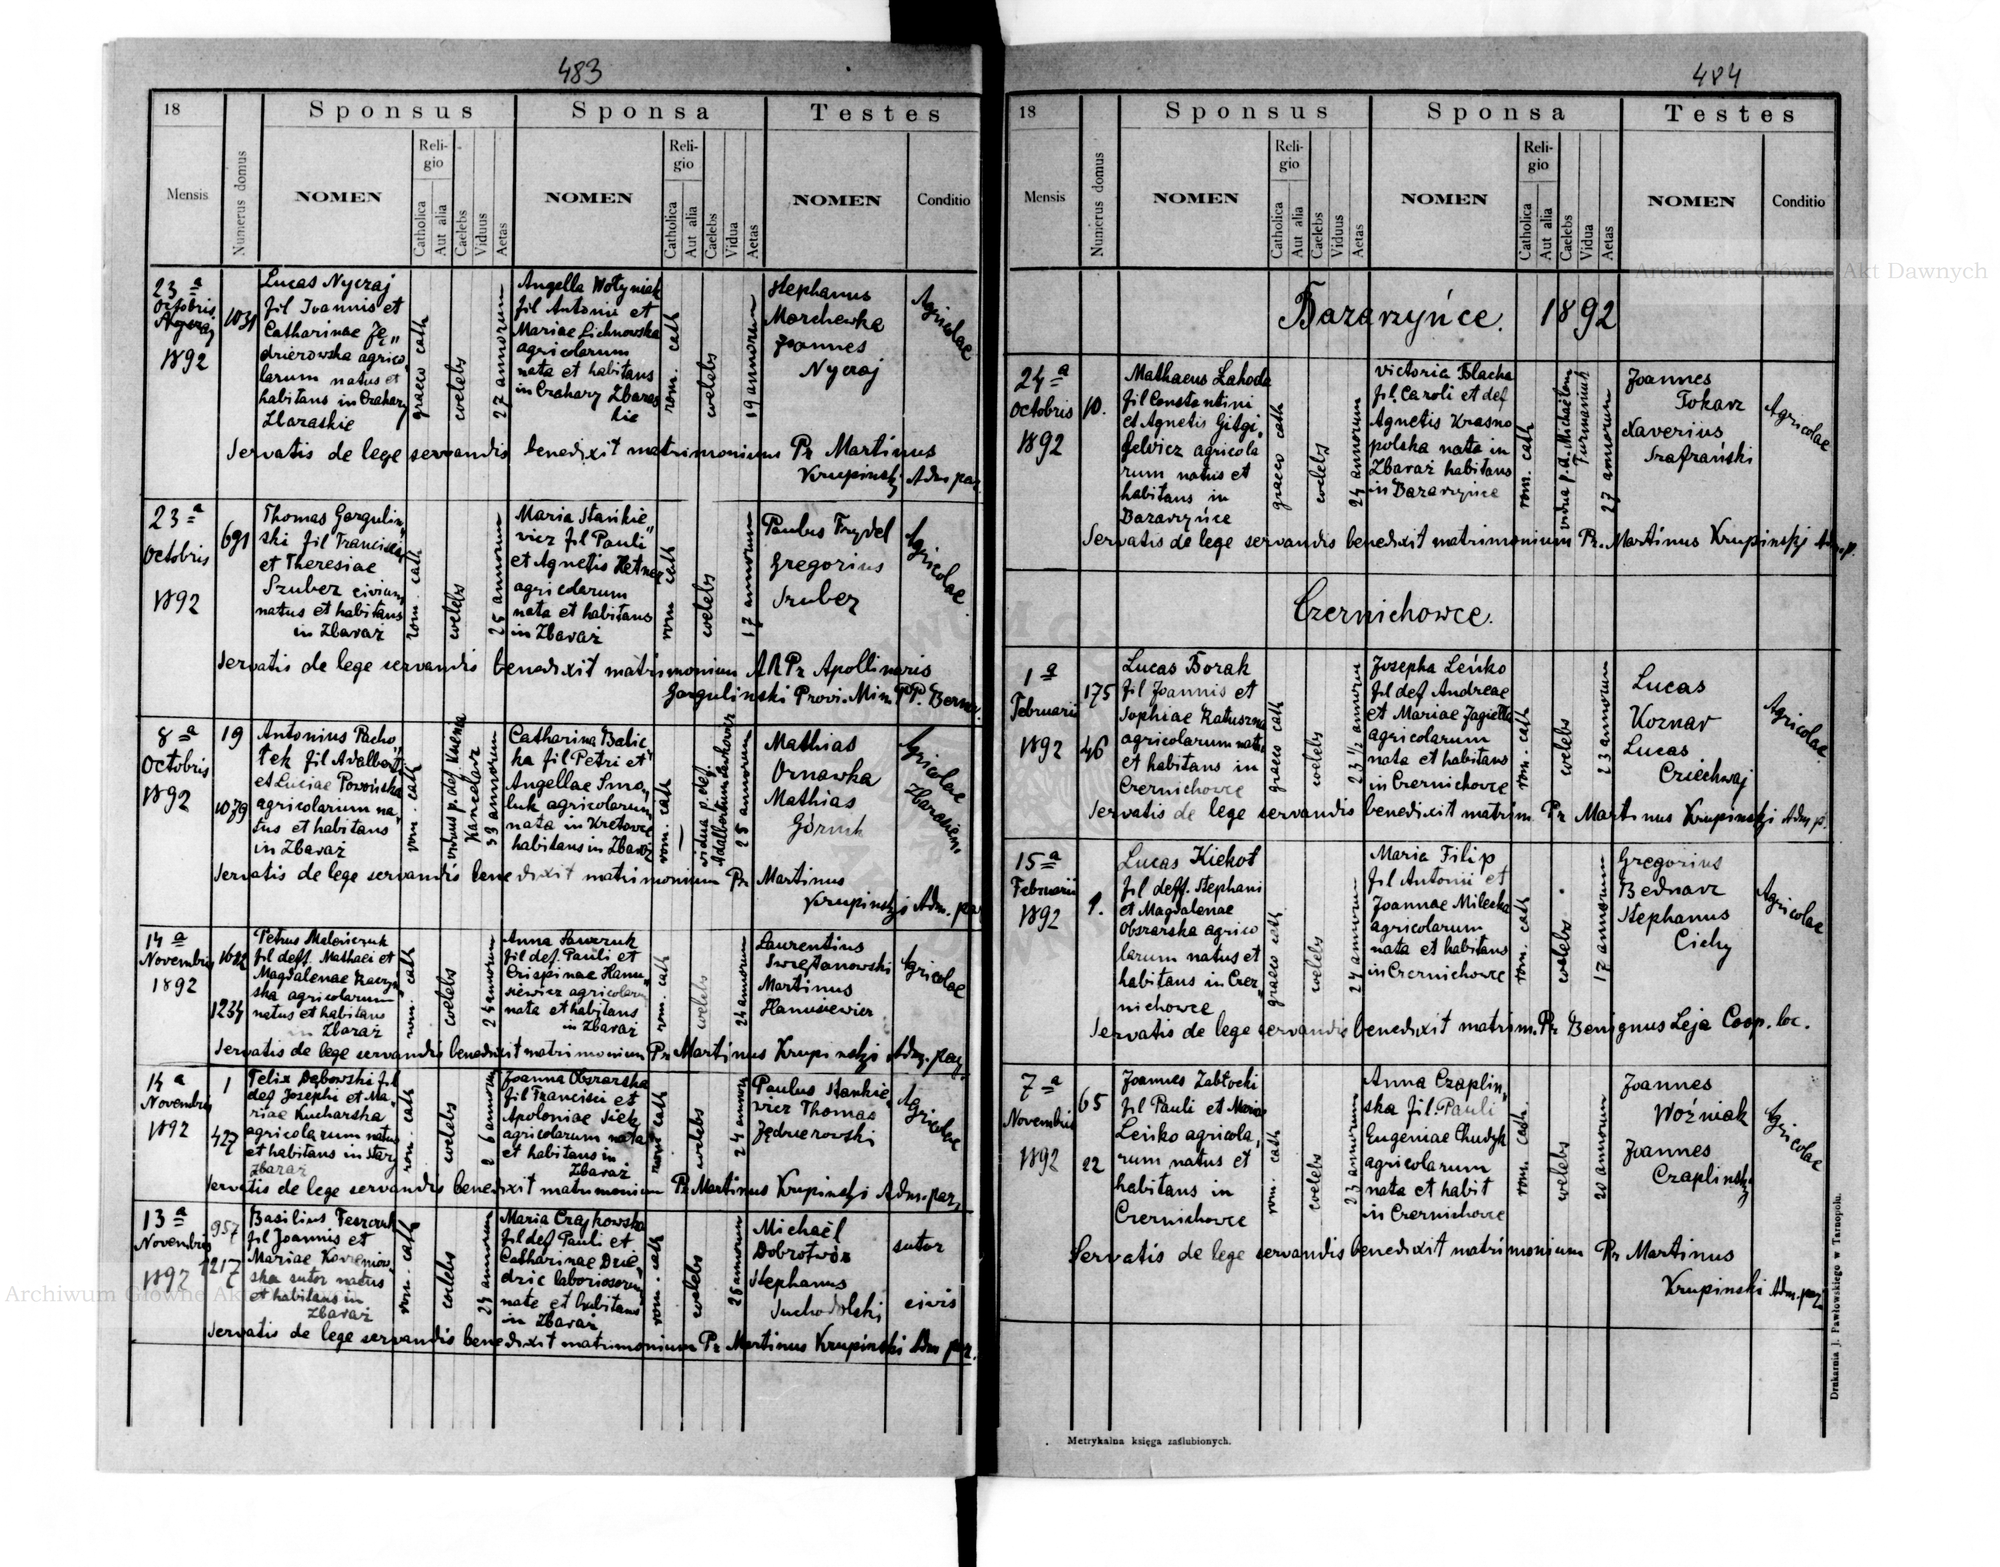 483
18
Sponsus
Sponsa
Testes
Mensis
Numerus domus
NOMEN
Religio
Catholica
Aut alia
Caelebs
Viduus
Aetas
NOMEN
Religio
Catholica
Aut alia
Caelebs
Vidua
Aetas
NOMEN
Conditio
23a
Octobris
1892
1031
Lucas Nyczaj
fil Joannis et
Catharinae Ję„
dzierowska agrico„
larum natus et
habitans in
Zbaraskie
graeco cath
coelebs
27 annorum
Angella Wołyniak
fil Antonii et
Mariae Lichnowska
agricolarum
nata et habitans
in Czahary Zbaras
kie
rom. cath
coelebs
19 annorum
Stephanus
Marchewka
Joannes
Nyczaj
Agricolae
Servatis de lege servandis benedixit matrimonium Pr Martinus
Krupinski Adm par.
23a
Octobris
1892
691
Thomas Gargulin„
ski fil Francisci
et Theresiae
Szuber civium
natus et habitans
in Zbaraż
rom. cath
coelebs
25 annorum
Maria Stankie„
wicz fil Pauli
et Agnetis Hetner
agricolarum
nata et habitans
in Zbaraż
rom cath
coelebs
17 annorum
Paulus Frydel
Gregorius
Szuber
Agricolae
Servatis de lege servandis benedixit matrimonium ARPr Apollinaris
Gargulinski Provi. Min. PP. Bernar.
8a
Octobris
1892
19
1079
Antonius Pacho„
łek fil Adalberti
et Luciae Powońska
agricolarum na„
tus et habitans
in Zbaraż
rom. cath
viduus p. def
33 annorum
Catharina Balic„
ka fil Petri et
Angellae Smo„
luk agricolarum
nata in Kretowce
habitans in Zbaraż
rom. cath
vidua p. def.
25 annorum
Mathias
Ornawka
Mathias
Górnik
Agricolae
Servatis de lege servandis benedixit matrimonium Pr Martinus
Krupinski Adm. par
14a
Novembris
1892
1234
Petrus Maleńczuk
fil deff. Mathaei et
Magdalenae Raczyń„
ska agricolarum
natus et habitans
in Zbaraż
rom. cath
coelebs
24 annorum
Anna Sawczuk
fil def. Pauli et
Crispinae Hanu„
siewicz agricolarum
nata et habitans
in Zbaraż
rom. cath
coelebs
24 annorum
Laurentius
Swięszanowski
Martinus
Hanusiewicz
Agricolae
Servatis de lege servandis benedixit matrimonium Pr Martinus Krupinski Adm. par.
14a
Novembris
1892
1
427
Felix Dąbowski fil
def Josephi et Ma„
riae Kucharska
agricolarum natus
et habitans in Stary
Zbaraż
rom. cath
coelebs
26 annorum
Joanna Obszarska
fil Francisci et
Apoloniae Siek
agricolarum nata
et habitans in
Zbaraż
rom cath
coelebs
24 annorum
Paulus Stankie„
wicz Thomas
Jędrzerowski
Agricolae
Servatis de lege servandis benedixit matrimonium Pr Martinus Krupinski Adm. par.
13a
Novembris
1892
957
1217
Basilius
fil Joannis et
Mariae
ska sutor natus
et habitans in
Zbaraż
rom. cath
coelebs
24 annorum
Maria Czajkowska
fil def Pauli et
Catharinae Dzie„
dzic laboriosorum
nata et habitans
in Zbaraż
rom. cath
coelebs
26 annorum
Michaël
Dobrotwór
Stephanus
Suchodolski
sutor
civis
Servatis de lege servandis benedixit matrimonium Pr Martinus Krupinski Adm par.
484
18
Sponsus
Sponsa
Testes
Mensis
Numerus domus
NOMEN
Religio
Catholica
Aut alia
Caelebs
Viduus
Aetas
NOMEN
Religio
Catholica
Aut alia
Caelebs
Vidua
Aetas
NOMEN
Conditio
Bazarzyńce. 1892
24a
Octobris
1892
10.
Mathaeus Lahoda
fil Constantini
et Agnetis Gitgi„
gelwicz agricola
rum natus et
habitans in
Bazarzyńce
graeco cath
coelebs
24 annorum
Victoria Blacha
fil. Caroli et def
Agnetis Krasno
polska nata in
Zbaraż habitans
in Bazarzyńce
rom. cath
vidua p. d. Michaëlem
Furmaniuk
27 annorum
Joannes
Tokarz
Xaverius
Szafrański
Agricolae
Servatis de lege servandis benedixit matrimonium Pr. Martinus Krupinski Adm. p.
Czernichowce.
1a
Februarii
1892
175
46
Lucas Borak
fil Joannis et
Sophiae Ratuszna
agricolarum natus
et habitans in
Czernichowce
graeco cath
coelebs
23 1/2 annorum
Josepha Leńko
fil def Andreae
et Mariae Jagiella
agricolarum
nata et habitans
in Czernichowce
rom. cath
coelebs
23 annorum
Lucas
Koznar
Lucas
Czichwaj
Agricolae
Servatis de lege servandis benedixit matrim. Pr Martinus Krupinski Adm p.
15a
Februarii
1892
9.
Lucas Kiekot
fil deff. Stephani
et Magdalenae
Obszarska agrico
larum natus et
habitans in Czer„
nichowce
graeco cath
coelebs
24 annorum
Maria Filip
fil Antonii et
Joannae Milecka
agricolarum
nata et habitans
in Czernichowce
rom. cath
coelebs
17 annorum
Gregorius
Bednarz
Stephanus
Cichy
Agricolae
Servatis de lege servandis benedixit matrim. Pr Benignus Leja Coop. loc.
7a
Novembris
1892
65
22
Joannes Zabłocki
fil Pauli et Mariae
Leńko agricola„
rum natus et
habitans in
Czernichowce
rom. cath
coelebs
23 annorum
Anna Czaplin„
ska fil. Pauli
Eugeniae Chudyk
agricolarum
nata et habit
in Czernichowce
rom. cath.
coelebs
20 annorum
Joannes
Woźniak
Joannes
Czaplinski
Agricolae
Servatis de lege servandis benedixit matrimonium Pr Martinus
Krupinski Adm. par
Metrykalna księga zaślubionych.
Drukarnia J. Pawłowskiego w Tarnopolu.
Archiwum Główne Akt Dawnych